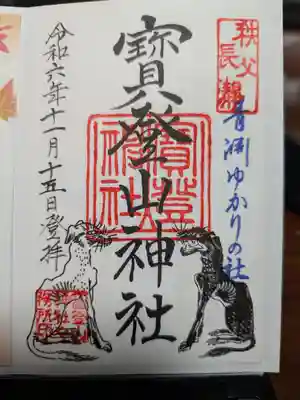 秩父
長瀞
青淵ゆかりの社
寶登山神社
寶登山
神社
令和六年十一月十五日登拝